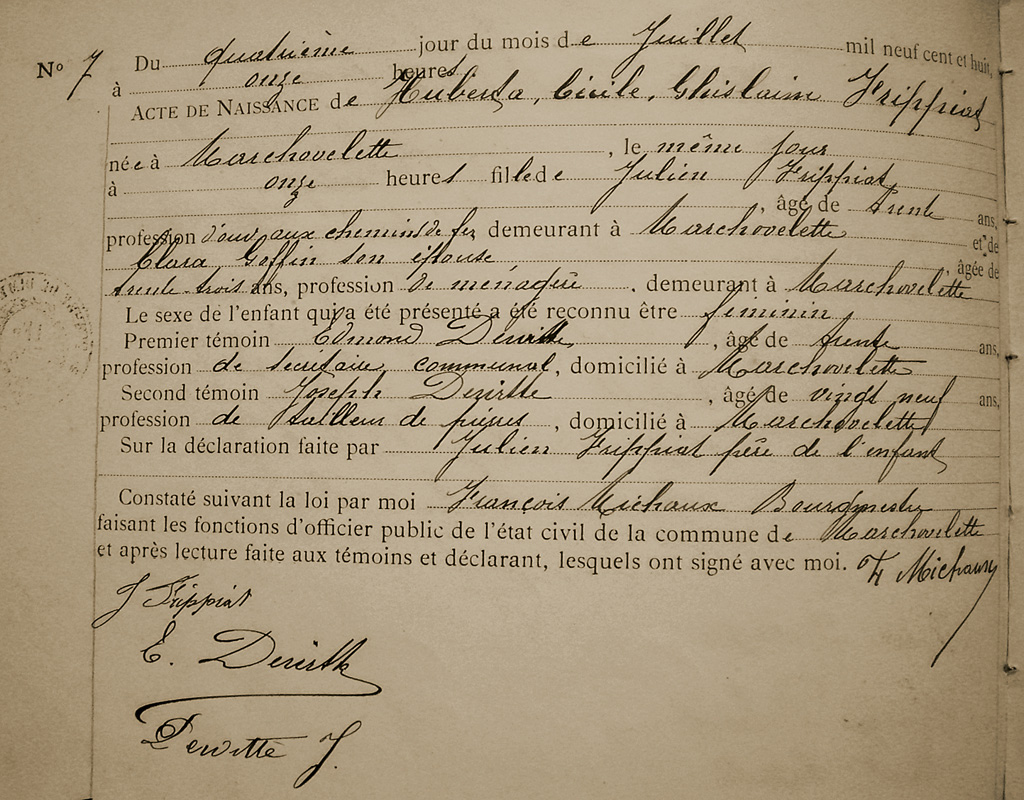 N° 7 Du quatrième jour du mois de Juillet mil neuf cent et huit,
à onze heures
ACTE DE NAISSANCE de Huberta, Cécile, Ghislaine Frippiat
née à Marchovelette, le même jour
à onze heures fille de Julien Frippiat,
, âgé de trente ans,
profession d'ouv. aux chemins de fer demeurant à Marchovelette et de
Clara Goffin son épouse, , âgée de
trente-trois ans, profession de ménagère, demeurant à Marchovelette
Le sexe de l'enfant qui a été présenté a été reconnu être féminin
Premier témoin Edmond Dewitte, âgé de trente ans,
profession de secrétaire communal, domicilié à Marchovelette
Second témoin Joseph Dewitte, âgé de vingt neuf ans,
profession de tailleur de pierres, domicilié à Marchovelette
Sur la déclaration faite par Julien Frippiat père de l'enfant
Constaté suivant la loi par moi François Michaux Bourgmestre
faisant les fonctions d'officier public de l'état civil de la commune de Marchovelette
et après lecture faite aux témoins et déclarant, lesquels ont signé avec moi. F Michaux
J Frippiat
E. Dewitte
Dewitte J.